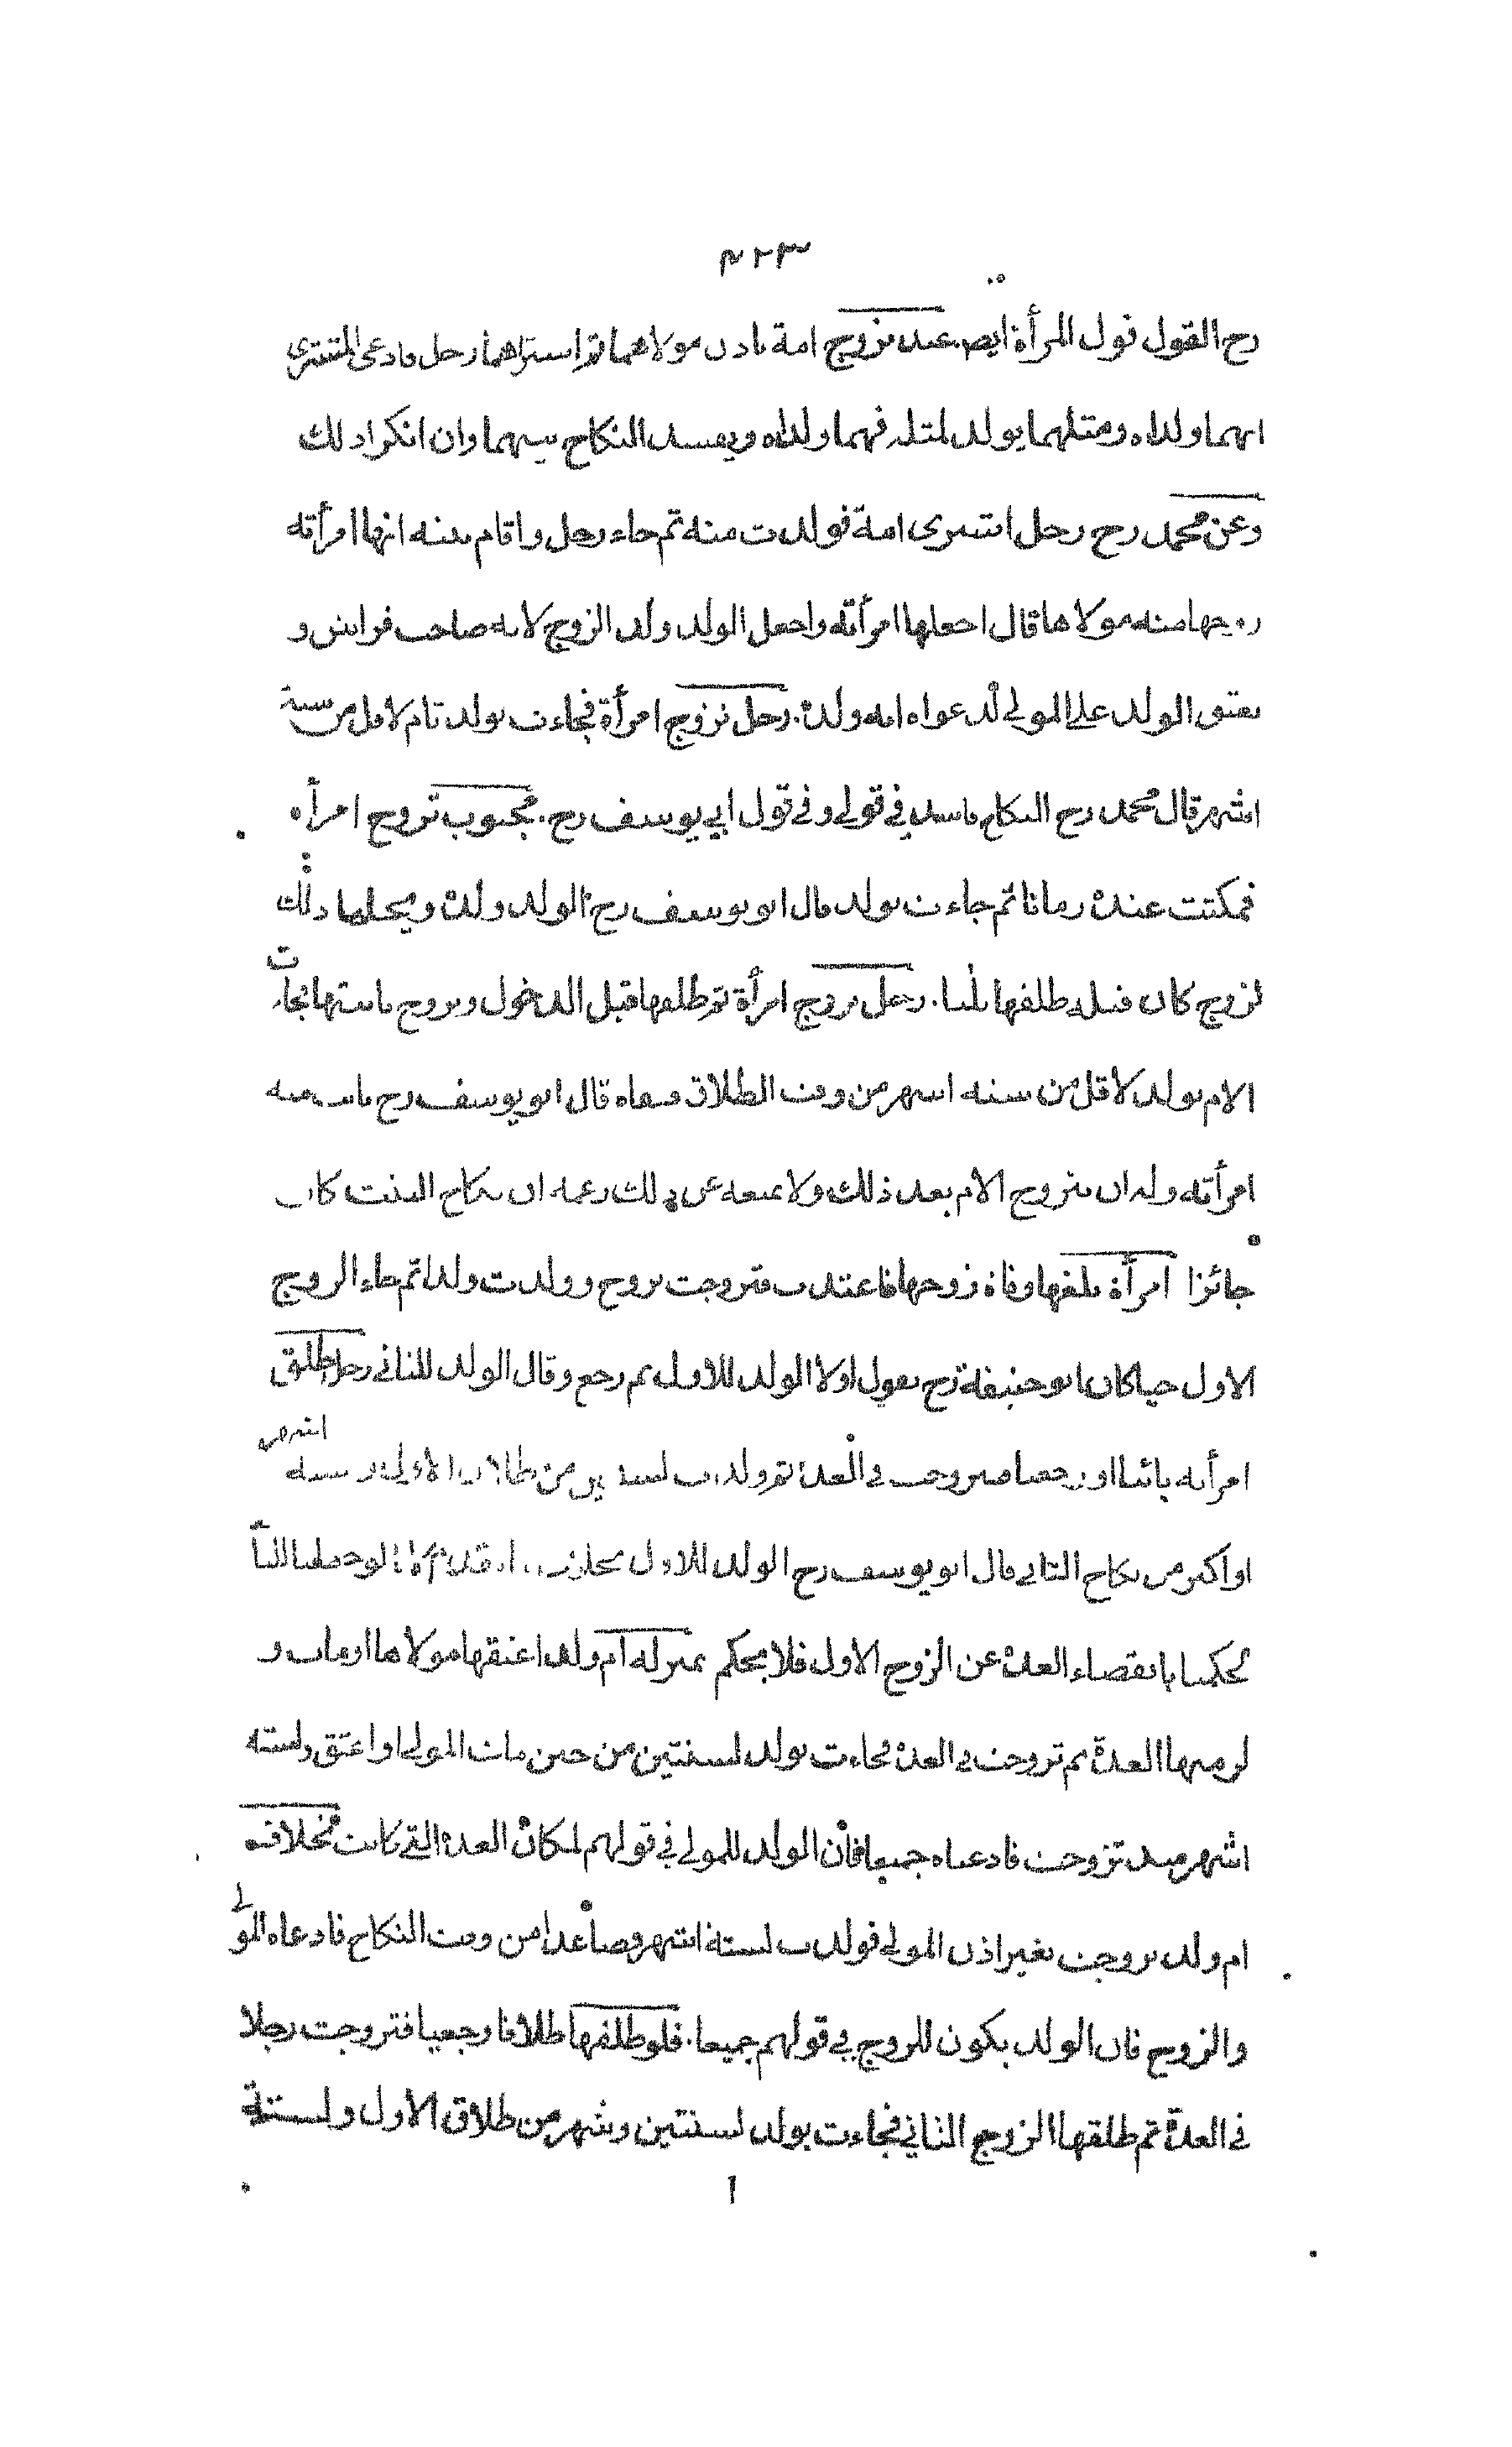 ٣٢٣
رح القول قول المرأة ايضا عبد تزوج امة باذن مولاهما ثم اشتراهما رجل فادعى المشتري
انهما ولداه ومثلهما يولد لمثله فهما ولداه ويفسد النكاح بينهما وان انكرا ذلك
وعن محمد رح رجل اشترى امة فولدت منه ثم جاء رجل واقام بينة انها امرأته
زوجها منه مولاها قال اجعلها امرأته واجعل الولد ولد الزوج لانه صاحب فراش و
يعتق الولد على المولى لدعواه انه ولده. رجل تزوج امرأة فجاءت بولد تام لاقل من ستة
اشهر قال محمد رح النكاح فاسد في قولي وفي قول ابي يوسف رح. مجبوب تزوج امرأة
فمكثت عنده زمانا ثم جاءت بولد قال ابو يوسف رح الولد ولده ويحلها ذلك
لزوج كان قبله طلقها ثلثا. رجل تزوج امرأة ثم طلقها قبل الدخول وتزوج بابنتها فجاءت
الام بولد لاقل من ستة اشهر من وقت الطلاق ونفاه قال ابو يوسف رح بانت منه
امرأته وله ان يتزوج الام بعد ذلك ولا يمنعه عن ذلك زعمه ان نكاح البنت كان
جائزا امرأة بلغها وفاة زوجها فاعتدت فتزوجت بزوج وولدت ولدا ثم جاء الزوج
الاول حيا كان ابو حنيفة رح يقول اولا الولد للاول ثم رجع وقال الولد للثاني رجل طلق
امرأته بائنا او رجعيا فتزوجت في العدة ثم ولدت لسنتين من طلاق الاول و ستة اشهر
او اكثر من نكاح الثاني قال ابو يوسف رح الولد للاول بخلاف قد
لحكمنا بانقضاء العدة عن الزوج الاول فلا يحكم بمنزلة ام ولد اعتقها مولاها او مات و
لزمها العدة ثم تزوجت في العدة فجاءت بولد لسنتين من حين مات المولى او اعتق ولستة
اشهر منذ تزوجت فادعياه جميعا فان الولد للمولى في قولهم لمكان العدة التي كانت بخلاف
ام ولد تزوجت بغير اذن المولى فولدت لستة اشهر فصاعدا من وقت النكاح فادعاه المولى
والزوج فان الولد يكون للزوج في قولهم جميعا. فلو طلقها طلاقا رجعيا فتزوجت رجلا
في العدة ثم طلقها الزوج الثاني فجاءت بولد لسنتين وشهر من طلاق الاول ولستة